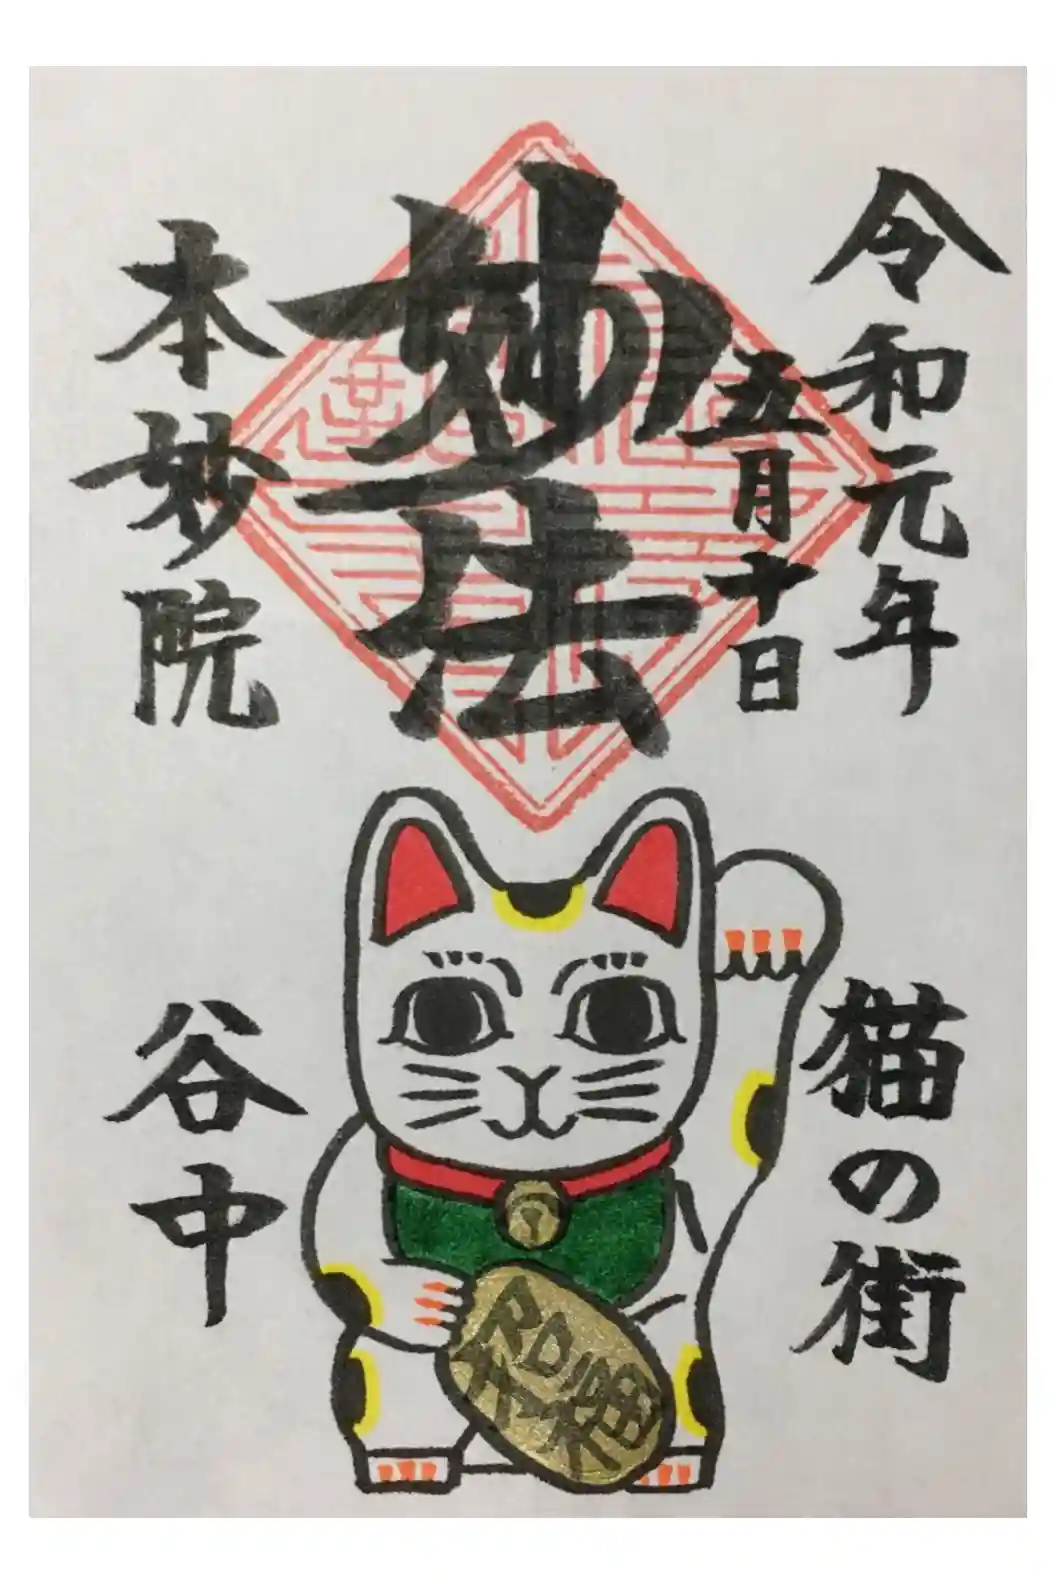 令和元年
五月十日
妙法
本妙院
猫の街
谷中